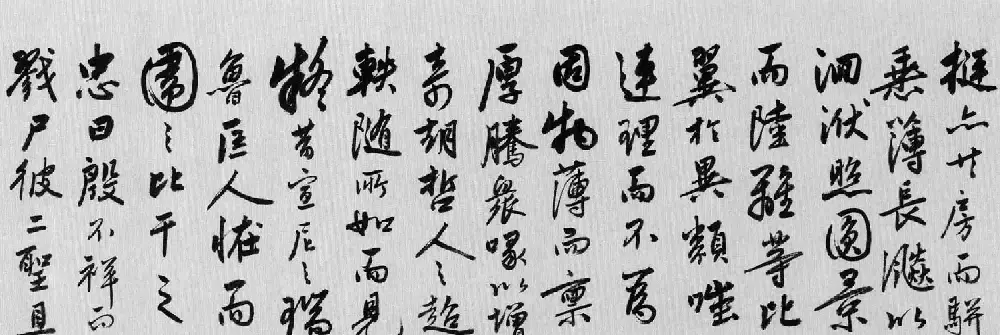 挺㫃廿房而駢
熏薄長飈以
泗洑照圓景
而陸離等比
翼於異類嗤
連理而不爲
因物薄而稟
厚騰衆喙以增
奇胡哲人之超
軼隨所如而見
猜昔宣尼之瑞
魯匡人怪而
圍之比干之
忠曰殷不祥而
戮尸彼二聖且